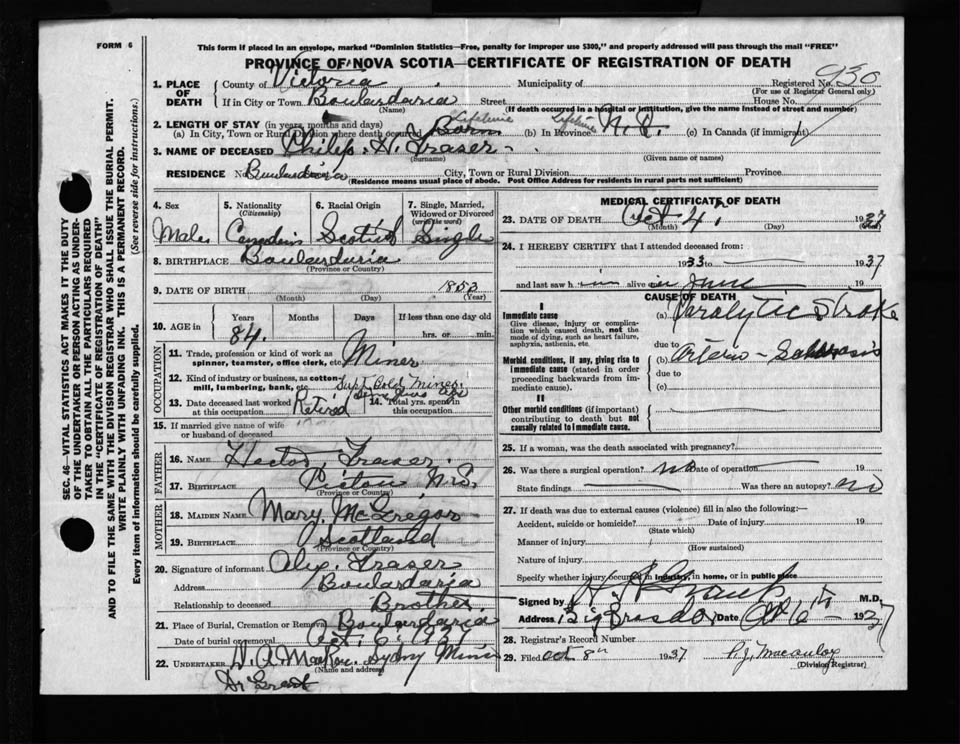 FORM 6
This form if placed in an envelope, marked "Dominion Statistics—Free, penalty for improper use $300," and properly addressed will pass through the mail "FREE"
PROVINCE OF NOVA SCOTIA—CERTIFICATE OF REGISTRATION OF DEATH
1. PLACE OF DEATH
County of Victoria Municipality of Registered No. 930
(For use of Registrar General only)
If in City or Town Boulardaria Street House No.
(Name) (If death occurred in a hospital or institution, give the name instead of street and number)
2. LENGTH OF STAY (in years, months and days)
(a) In City, Town or Rural Division where death occurred Lifetime Born (b) In Province Lifetime N.S. (c) In Canada (if immigrant)
3. NAME OF DECEASED Philip H. Fraser
(Surname) (Given name or names)
RESIDENCE No. Boulardaria City, Town or Rural Division Province
(Residence means usual place of abode. Post Office Address for residents in rural parts not sufficient)
4. Sex 5. Nationality (Citizenship) 6. Racial Origin 7. Single, Married, Widowed or Divorced (write the word)
Male Canadian Scotish Single
8. BIRTHPLACE Boulardaria
(Province or Country)
9. DATE OF BIRTH 1853
(Month) (Day) (Year)
10. AGE in Years Months Days If less than one day old
84 hrs. or min.
OCCUPATION
11. Trade, profession or kind of work as spinner, teamster, office clerk, etc. Miner
12. Kind of industry or business, as cotton mill, lumbering, bank, etc. Supt Gold Mines
13. Date deceased last worked at this occupation Retired 14. Total yrs. spent in this occupation
15. If married give name of wife or husband of deceased
FATHER
16. NAME Hector Fraser
17. BIRTHPLACE Pictou N.S.
(Province or Country)
MOTHER
18. MAIDEN NAME Mary McGregor
19. BIRTHPLACE Scotland
(Province or Country)
20. Signature of informant Alex. Fraser
Address Boulardaria
Relationship to deceased Brother
21. Place of Burial, Cremation or Removal Boulardaria
Date of burial or removal Oct. 6, 1937
22. UNDERTAKER D. A. MacRae Sydney Mines
(Name and address)
Dr Grant
MEDICAL CERTIFICATE OF DEATH
23. DATE OF DEATH Oct 4 1937
(Month) (Day) (Year)
24. I HEREBY CERTIFY that I attended deceased from:
1933 to 1937
and last saw him alive in June 19
CAUSE OF DEATH
I
Immediate cause
Give disease, injury or complication which caused death, not the mode of dying, such as heart failure, asphyxia, asthenia, etc.
(a) Paralytic Stroke
due to
Morbid conditions, if any, giving rise to immediate cause (stated in order proceeding backwards from immediate cause).
(b) Arterio-Sclerosis
due to
(c)
II
Other morbid conditions (if important) contributing to death but not causally related to immediate cause.
25. If a woman, was the death associated with pregnancy?
26. Was there a surgical operation? no Date of operation 19
State findings Was there an autopsy? no
27. If death was due to external causes (violence) fill in also the following:—
Accident, suicide or homicide? Date of injury 19
(State which)
Manner of injury
(How sustained)
Nature of injury
Specify whether injury occurred in industry, in home, or in public place
Signed by Grant M.D.
Address Big Brasdor Date Oct 6th 1937
28. Registrar's Record Number
29. Filed Oct 8th 1937
(Division Registrar)
SEC. 46—VITAL STATISTICS ACT MAKES IT THE DUTY
OF THE UNDERTAKER OR PERSON ACTING AS UNDERTAKER
TO OBTAIN ALL THE PARTICULARS REQUIRED
IN THE "CERTIFICATE OF REGISTRATION OF DEATH"
AND TO FILE THE SAME WITH THE DIVISION REGISTRAR WHO SHALL ISSUE THE BURIAL PERMIT.
WRITE PLAINLY WITH UNFADING INK. THIS IS A PERMANENT RECORD.
Every item of information should be carefully supplied. (See reverse side for instructions.)